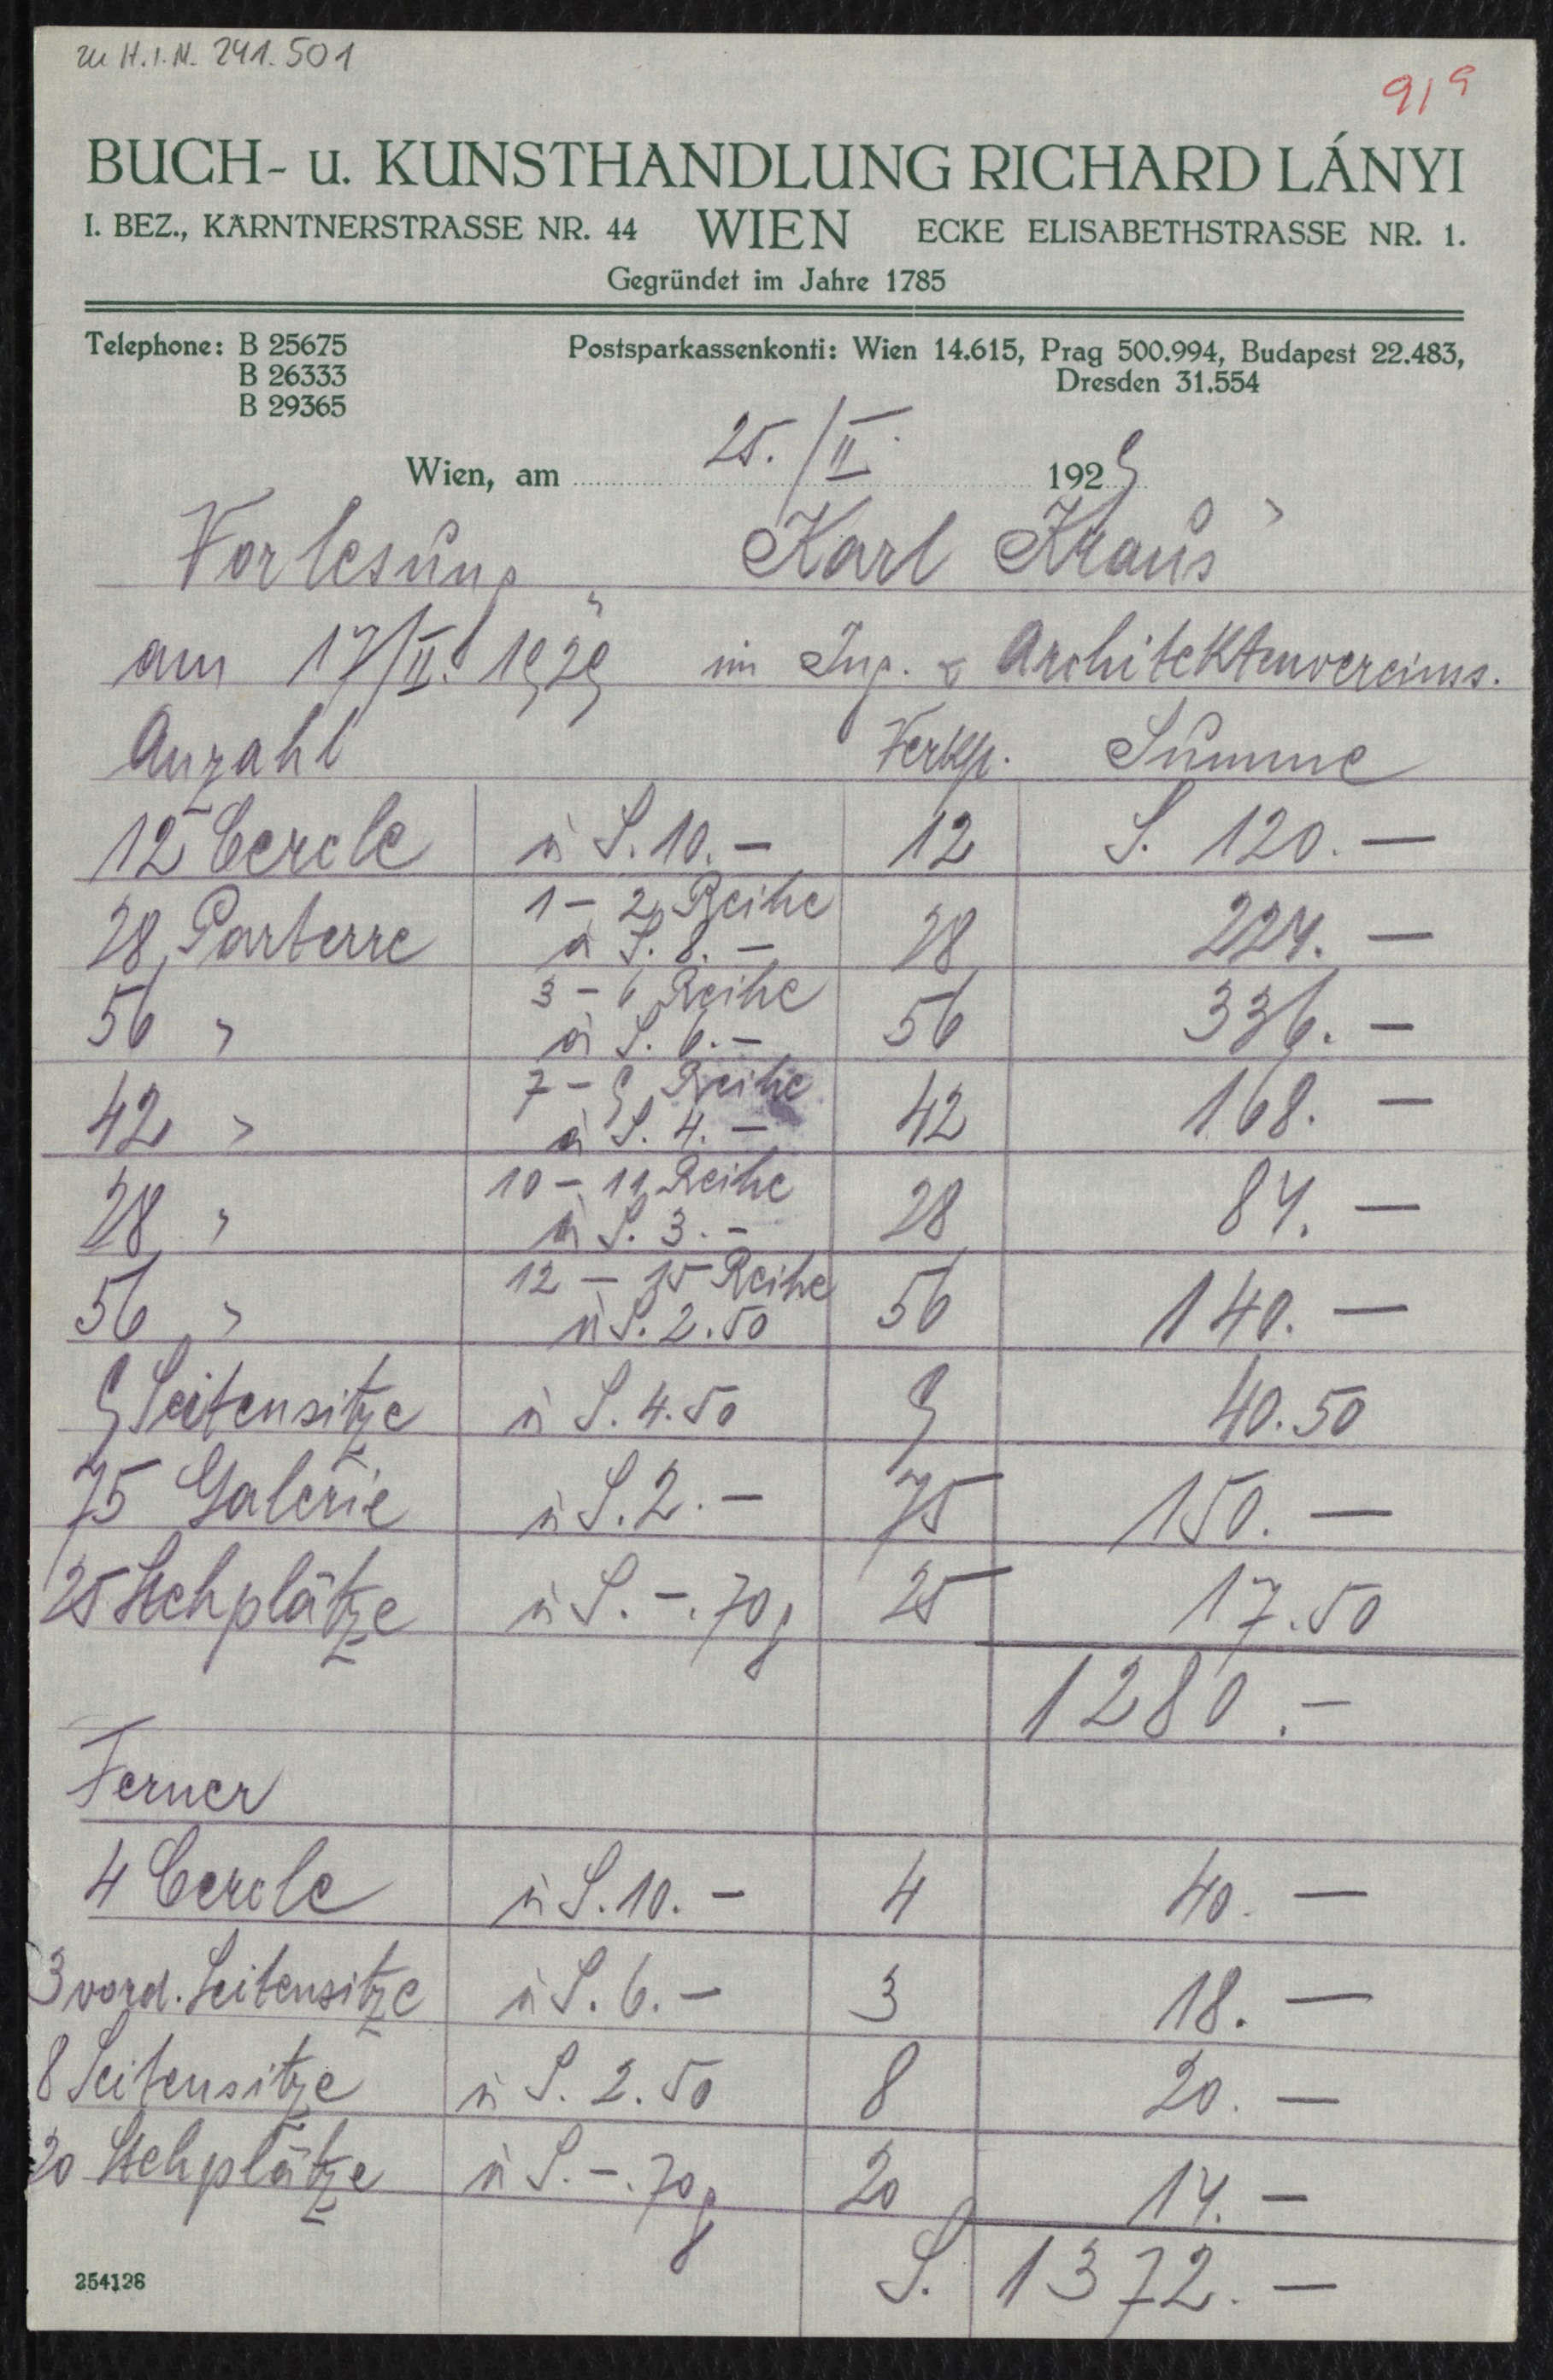 zu H.I.N. 241.501
919
BUCH- u. KUNSTHANDLUNG RICHARD LÁNYI
I. BEZ., KÄRNTNERSTRASSE NR. 44 WIEN ECKE ELISABETHSTRASSE NR. 1.
Gegründet im Jahre 1785
Telephone: B 25675
B 26333
B 29365
Postsparkassenkonti: Wien 14.615, Prag 500.994, Budapest 22.483,
Dresden 31.554
Wien, am 25./II. 1929
Vorlesung „Karl Kraus"
am 17/II. 1929 im Ing. & Architektenvereins.
Anzahl Verkp. Summe
12 Cercle à S. 10.— 12 S. 120.—
28 Parterre 1 – 2 Reihe à S. 8.— 28 224.—
56 " 3 – 6 Reihe à S. 6.— 56 336.—
42 " 7 – 9 Reihe à S. 4.— 42 168.—
28 " 10 – 11 Reihe à S. 3.— 28 84.—
56 " 12 – 15 Reihe à S. 2.50 56 140.—
9 Seitensitze à S. 4.50 9 40.50
75 Galerie à S. 2.— 75 150.—
25 Stehplätze à S. –.70g 25 17.50
1280.—
Ferner
4 Cercle à S. 10.— 4 40.—
3 vord. Seitensitze à S. 6.— 3 18.—
8 Seitensitze à S. 2.50 8 20.—
20 Stehplätze à S. –.70g 20 14.—
S. 1372.—
254128